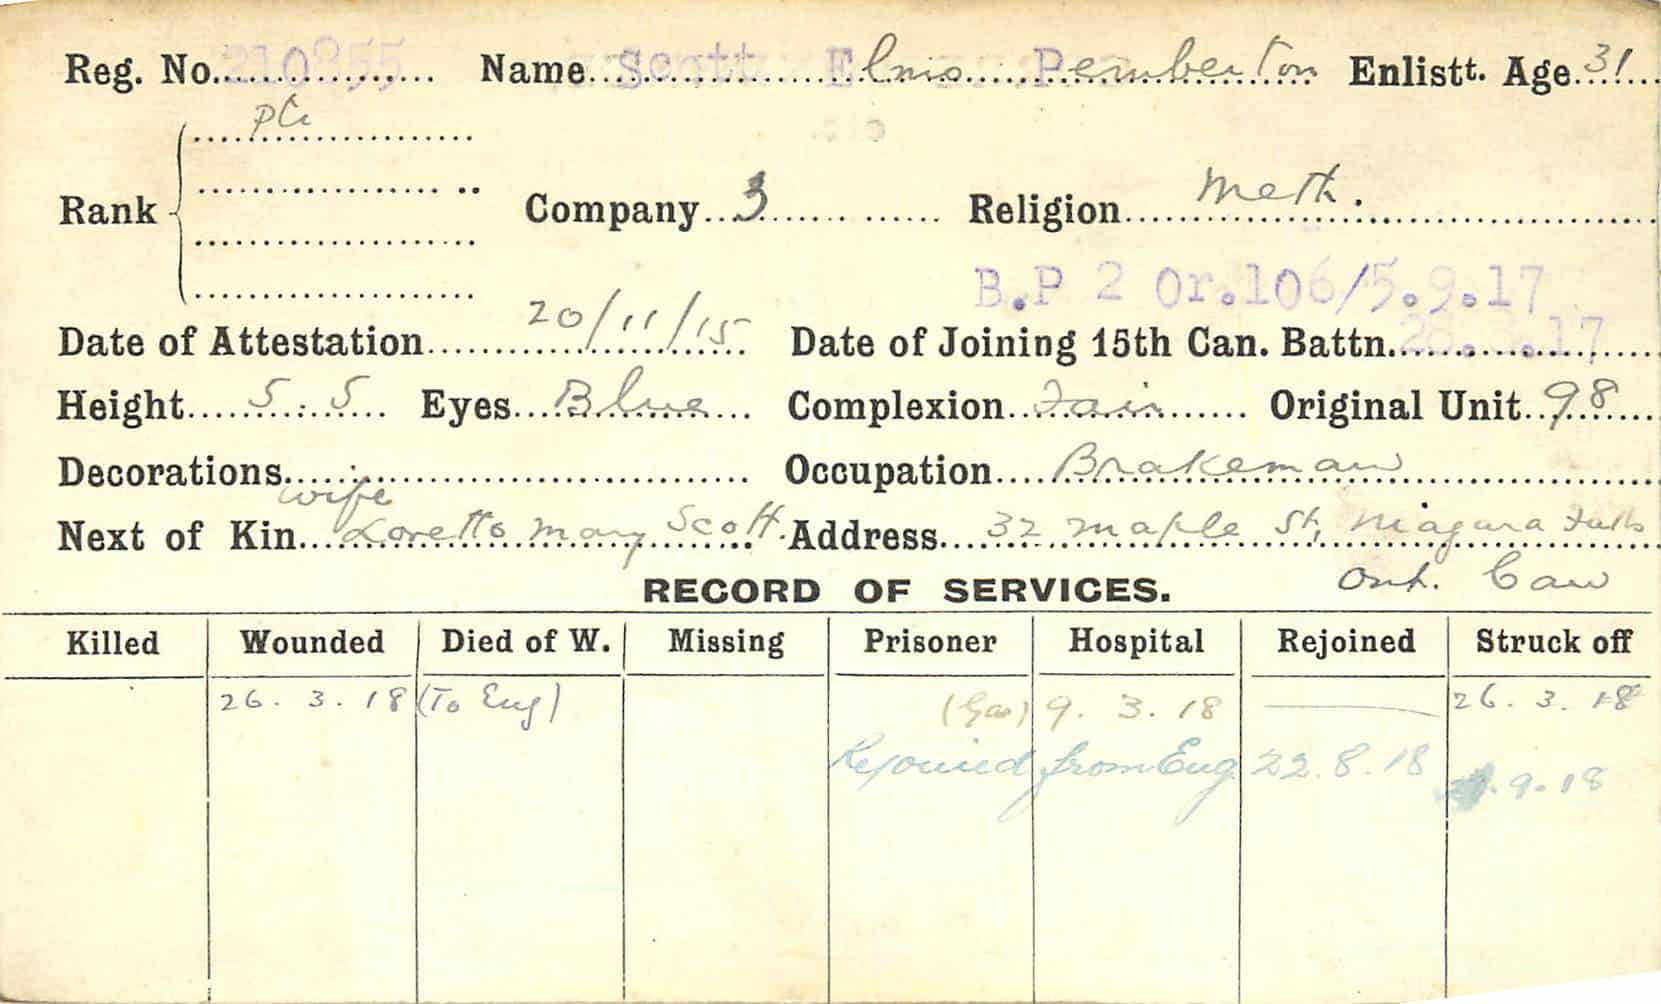 Reg. No. 210855 Name Scott Elmo Pemberton Enlistt. Age 31
Pte
Rank Company 3 Religion Meth.
B.P 2 Or.106/5.9.17
Date of Attestation 20/11/15 Date of Joining 15th Can. Battn.
Height 5.5 Eyes Blue Complexion Fair Original Unit 98
Decorations Occupation Brakeman
wife
Next of Kin Loretto Mary Scott. Address 32 Maple St, Niagara Falls
Ont. Can
RECORD OF SERVICES.
Killed Wounded Died of W. Missing Prisoner Hospital Rejoined Struck off
26. 3. 18 (To Eng) (Gas) 9. 3. 18 26. 3. 18
Rejoined from Eng 22.8.18 9.18